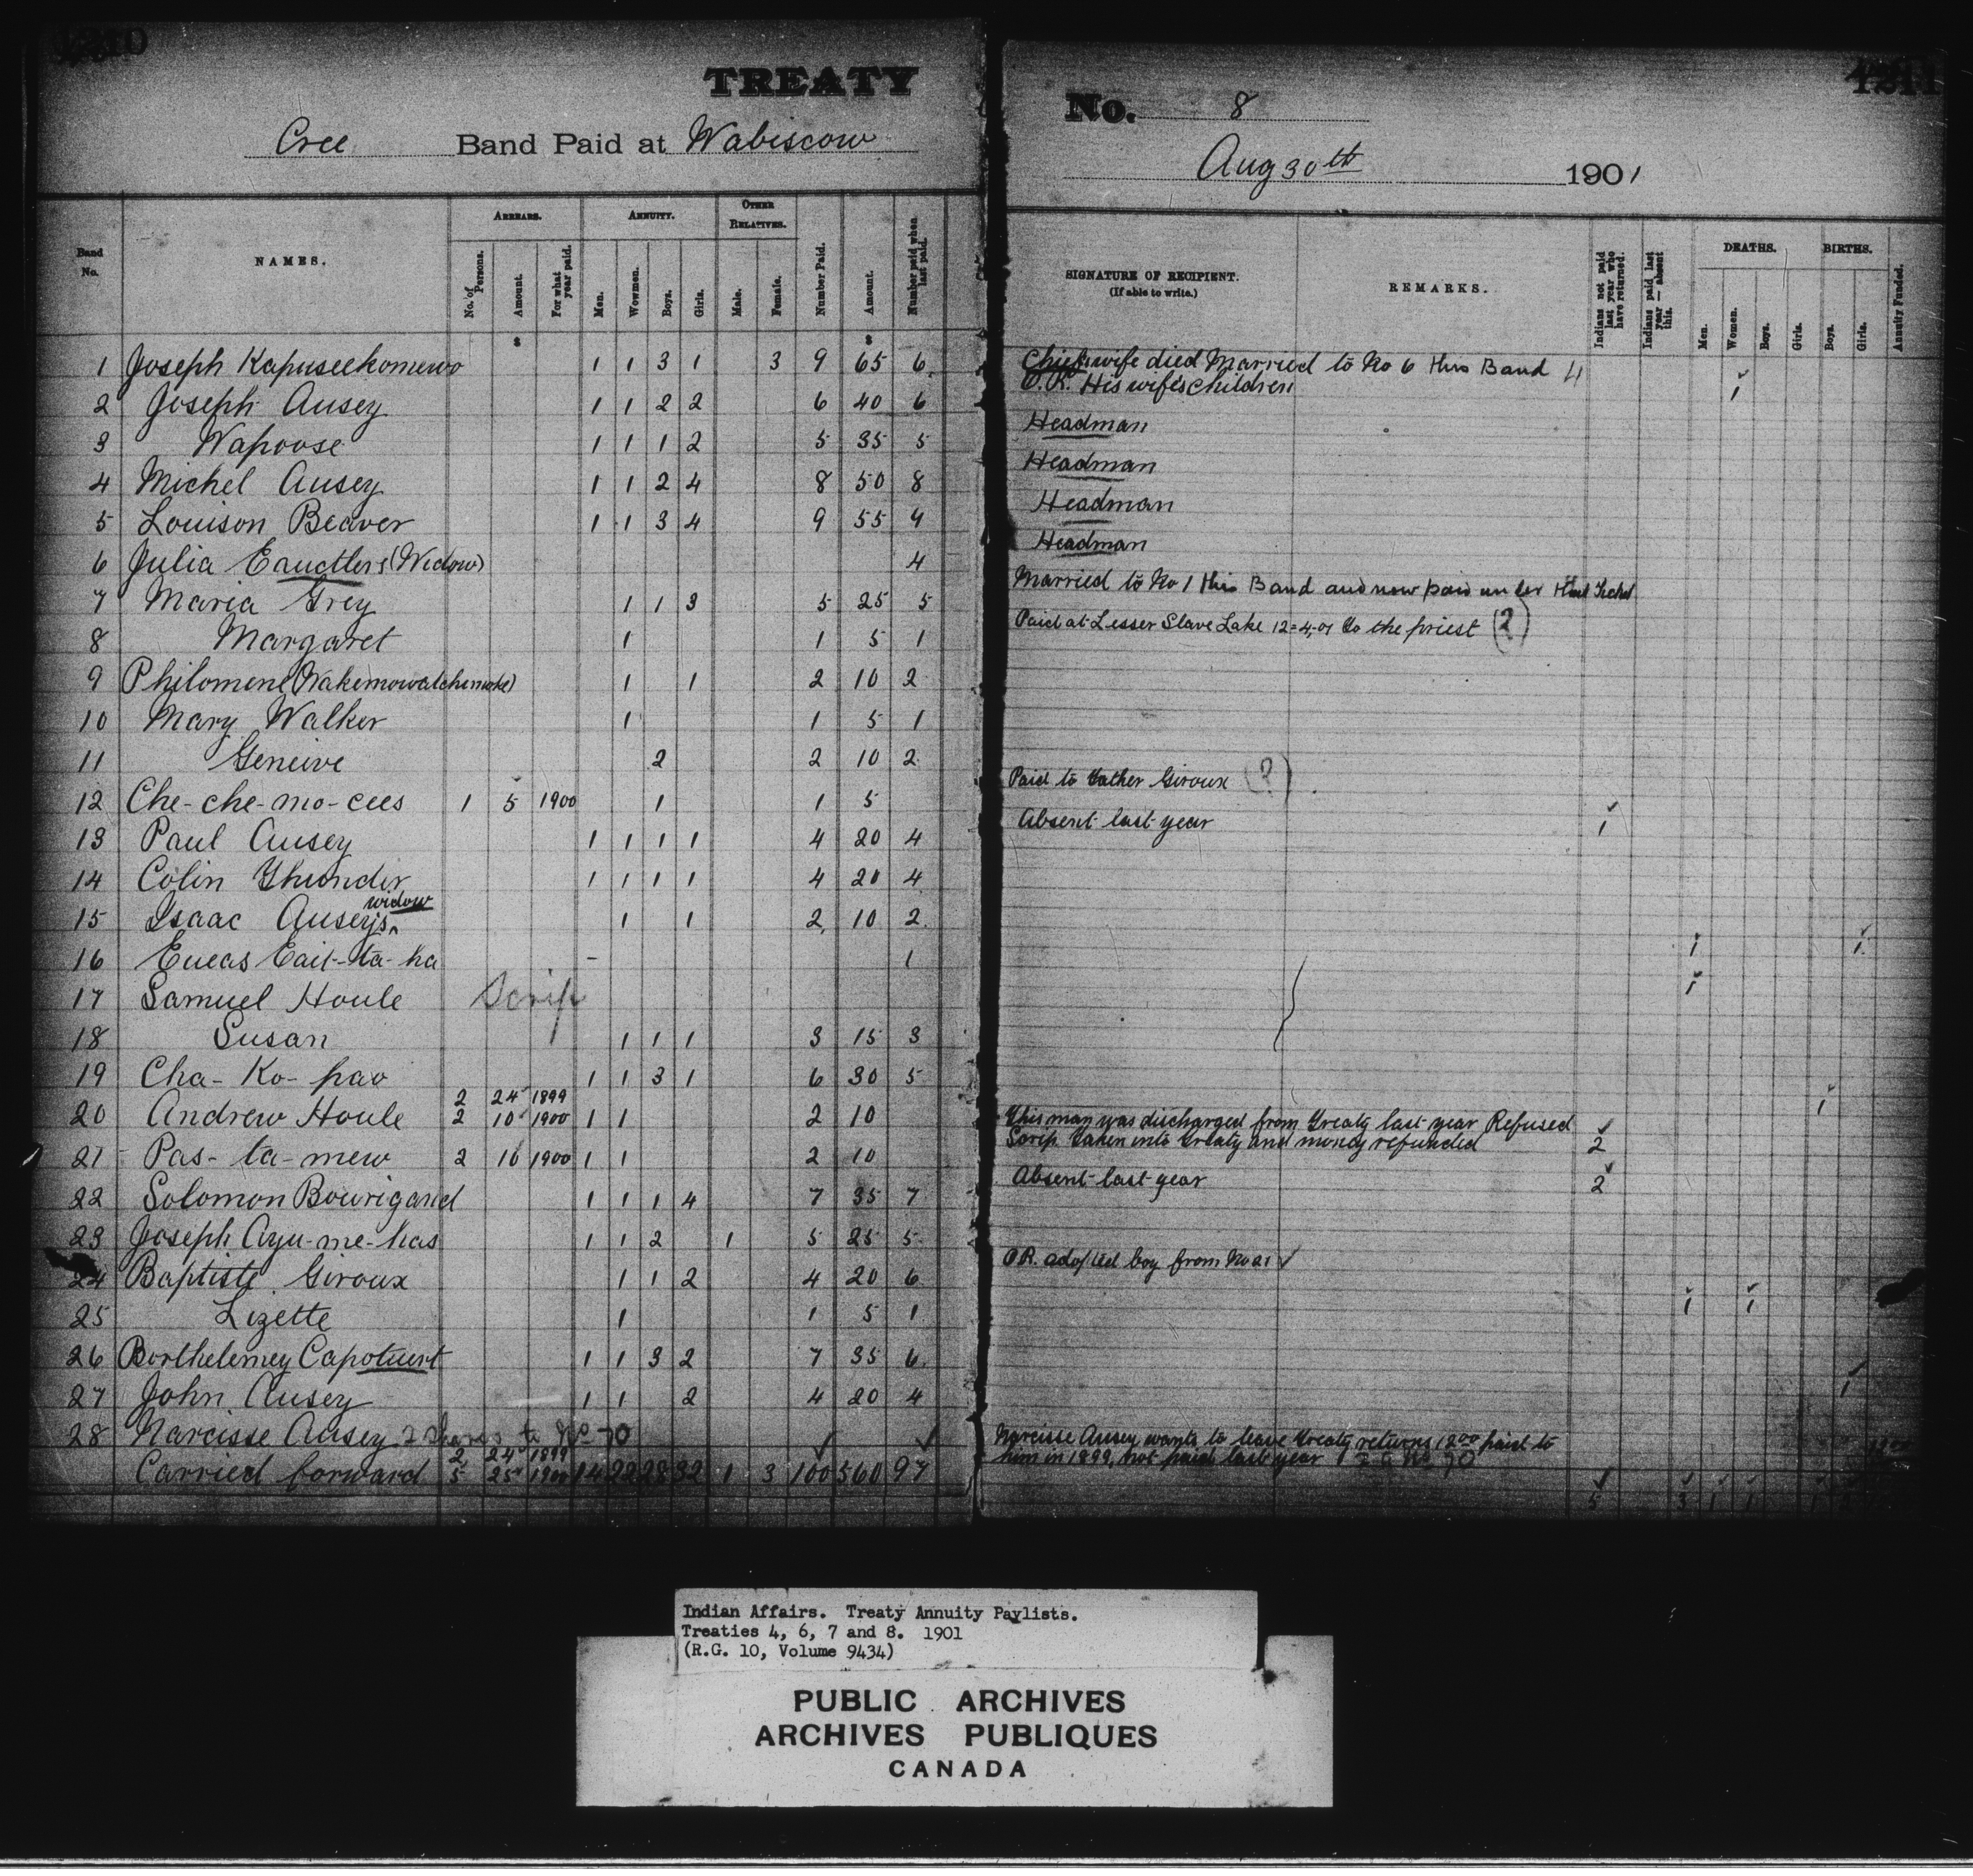 TREATY
No. 8
Cree Band Paid at Wabiscow
Aug 30th 1901
Band No. NAMES. ARREARS. No. of Persons. Amount. For what year paid. ANNUITY. Men. Wowmen. Boys. Girls. OTHER RELATIVES. Male. Female. Number Paid. Amount. Number paid when last paid.
SIGNATURE OF RECIPIENT. (If able to write.) REMARKS. Indians not paid last year who have returned. Indians paid last year — absent this. DEATHS. Men. Women. Boys. Girls. BIRTHS. Boys. Girls. Annuity Funded.
$ $
1 Joseph Kapuseekomewo 1 1 3 1 3 9 65 6 Chief wife died Married to No 6 this Band
O.R. His wife's children 1
2 Joseph Ausey 1 1 2 2 6 40 6 Headman
3 Wapoose 1 1 1 2 5 35 5 Headman
4 Michel Ausey 1 1 2 4 8 50 8 Headman
5 Louison Beaver 1 1 3 4 9 55 9 Headman
6 Julia (Widow) 4 Married to No 1 this Band and now paid under that Ticket
7 Maria Grey 1 1 3 5 25 5 Paid at Lesser Slave Lake 12-4-01 to the priest (?)
8 Margaret 1 1 5 1
9 Philomene 1 1 2 10 2
10 Mary Walker 1 1 5 1
11 Geneive 2 2 10 2 Paid to Father Giroux (?)
12 Che-che-mo-cees 1 5 1900 1 1 5 Absent last year 1
13 Paul Ausey 1 1 1 1 4 20 4
14 Colin Thunder 1 1 1 1 4 20 4
15 Isaac Ausey's widow 1 1 2 10 2 1 1
16 - 1 1
17 Samuel Houle Scrip
18 Susan 1 1 1 3 15 3
19 Cha-Ko-pao 1 1 3 1 6 30 5 1
2 24 1899
20 Andrew Houle 2 10 1900 1 1 2 10 This man was discharged from Treaty last year Refused
Scrip taken into treaty and money refunded 2
21 Pas-ta-mew 2 10 1900 1 1 2 10 Absent last year 2
22 Solomon Bourigand 1 1 1 4 7 35 7
23 Joseph Ayu-me-kas 1 1 2 1 5 25 5 O.R. adopted boy from No 21
24 Baptiste Giroux 1 1 2 4 20 6 1 1
25 Lizette 1 1 5 1
26 Borthelemey 1 1 3 2 7 35 6 1
27 John Ausey 1 1 2 4 20 4
28 Narcisse Ausey 2 Shares to No 70 Narcisse Ausey wants to leave treaty returns 12.00 paid to
him in 1899, not paid last year No 70 12.00
2 24 1899
Carried forward 5 25 1900 14 22 28 32 1 3 100 560 97 5 3 1 1 1
Indian Affairs. Treaty Annuity Paylists.
Treaties 4, 6, 7 and 8. 1901
(R.G. 10, Volume 9434)
PUBLIC ARCHIVES
ARCHIVES PUBLIQUES
CANADA